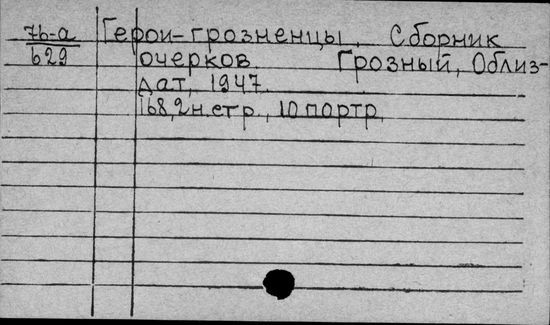 7б-а Герои-грозненцы. Сборник
629 очерков. Грозный, Облиз-
дат, 1947.
168, 2 н. стр., 10 портр.